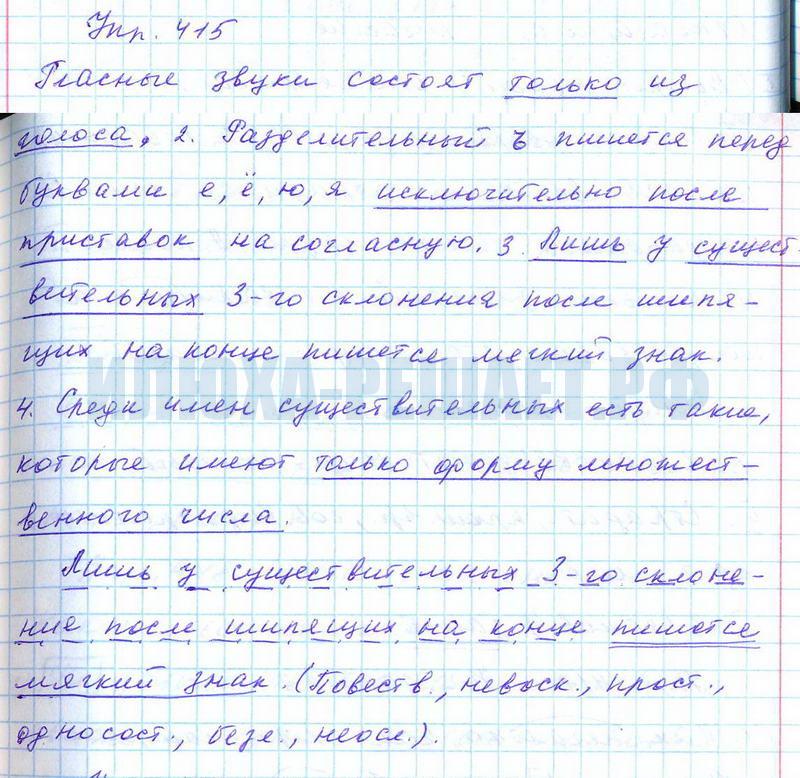 Упр. 415
Гласные звуки состоят только из
голоса. 2. Разделительный ъ пишется перед
буквами е, ё, ю, я исключительно после
приставок на согласную. 3. Лишь у сущест-
вительных 3-го склонения после шипя-
щих на конце пишется мягкий знак.
ИЛЮХА-РЕШАЕТ.РФ
4. Среди имен существительных есть такие,
которые имеют только форму множест-
венного числа.
Лишь у существительных 3-го склоне-
ние после шипящих на конце пишется
мягкий знак. (Повеств., невоск., прост.,
односост., безл., неосл.).